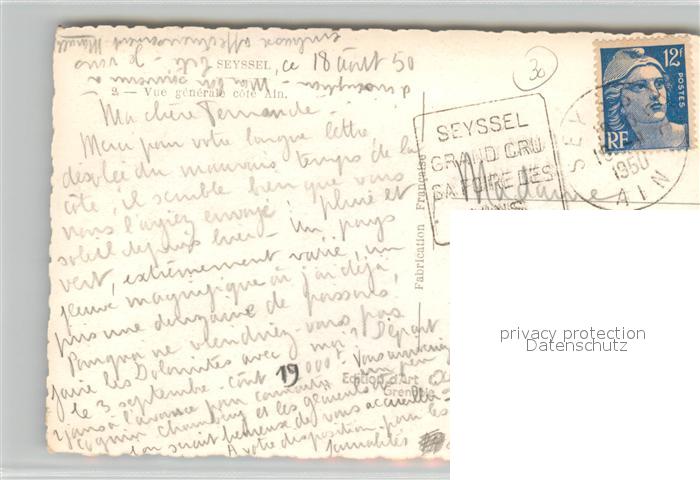 SEYSSEL, ce 18 août 50
2. — Vue générale côté Ain.
Ma chère Fernande
Merci pour votre longue lettre
désolée du mauvais temps de la
côte, il semble bien que vous
nous l'ayiez envoyé, pluie et
soleil depuis hier. Un pays
vert, extrêmement varié, un
fleuve magnifique où j'ai déjà
pris une douzaine de poissons
Pourquoi ne viendriez vous pas
faire les Dolomites avec moi ? Départ
le 3 septembre. coût 19 000 f. Vous
à l'avance pour
Chambéry et les
on serait heureuse de vous accueillir
A votre disposition pour les
formalités
je vous
embrasse affectueusement
Fabrication Française
Edition d'Art
Grenoble
30
SEYSSEL
GRAND CRU
SA FOIRE DES
VINS
Madame
SE
1950
AIN
12f
POSTES
RF
privacy protection
Datenschutz